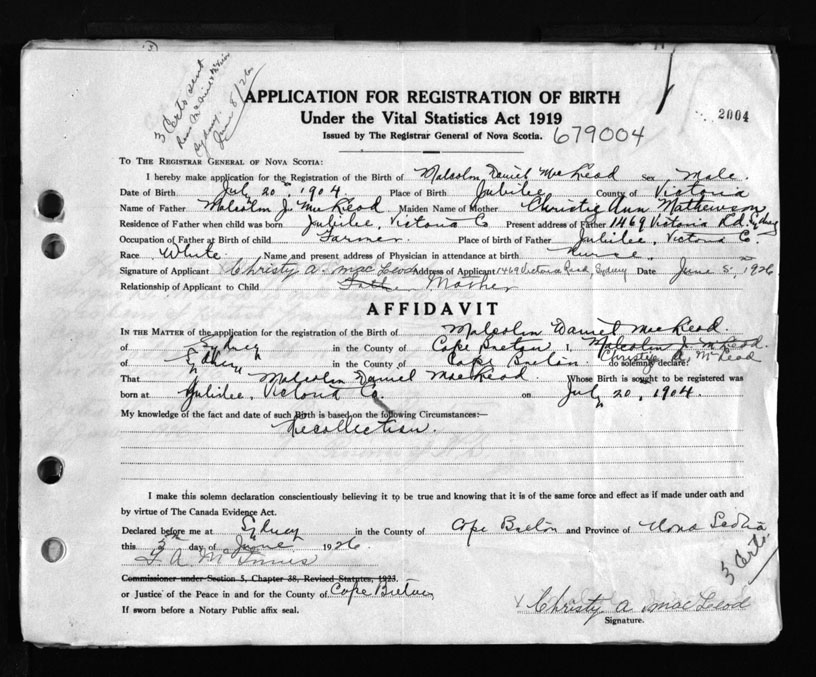 3 Certs sent
Sydney
June 8/26
APPLICATION FOR REGISTRATION OF BIRTH
Under the Vital Statistics Act 1919
2004
Issued by The Registrar General of Nova Scotia.
679004
TO THE REGISTRAR GENERAL OF NOVA SCOTIA:
I hereby make application for the Registration of the Birth of Malcolm Daniel MacLeod sex Male.
Date of Birth July 20th 1904 Place of Birth Jubilee County of Victoria
Name of Father Malcolm J. MacLeod Maiden Name of Mother Christy Ann Mathewson
Residence of Father when child was born Jubilee, Victoria Co Present address of Father 1469 Victoria Rd. Sydney
Occupation of Father at Birth of child Farmer Place of birth of Father Jubilee, Victoria Co.
Race White Name and present address of Physician in attendance at birth Nurse
Signature of Applicant Christy A. MacLeod Address of Applicant 1469 Victoria Road, Sydney Date June 5, 1926
Relationship of Applicant to Child Father Mother
AFFIDAVIT
IN THE MATTER of the application for the registration of the Birth of Malcolm Daniel MacLeod.
of Sydney in the County of Cape Breton I, Malcolm J. McLeod.
Christy A. McLeod
of Sydney in the County of Cape Breton. do solemnly declare:
That Malcolm Daniel MacLeod Whose Birth is sought to be registered was
born at Jubilee, Victoria Co. on July 20, 1904.
My knowledge of the fact and date of such Birth is based on the following Circumstances:—
Recollection.
I make this solemn declaration conscientiously believing it to be true and knowing that it is of the same force and effect as if made under oath and
by virtue of The Canada Evidence Act.
Declared before me at Sydney in the County of Cape Breton and Province of Nova Scotia
this 5th day of June 1926
Commissioner under Section 5, Chapter 38, Revised Statutes, 1923.
or Justice of the Peace in and for the County of Cape Breton
If sworn before a Notary Public affix seal.
3 Certs
Christy A MacLeod
Signature.